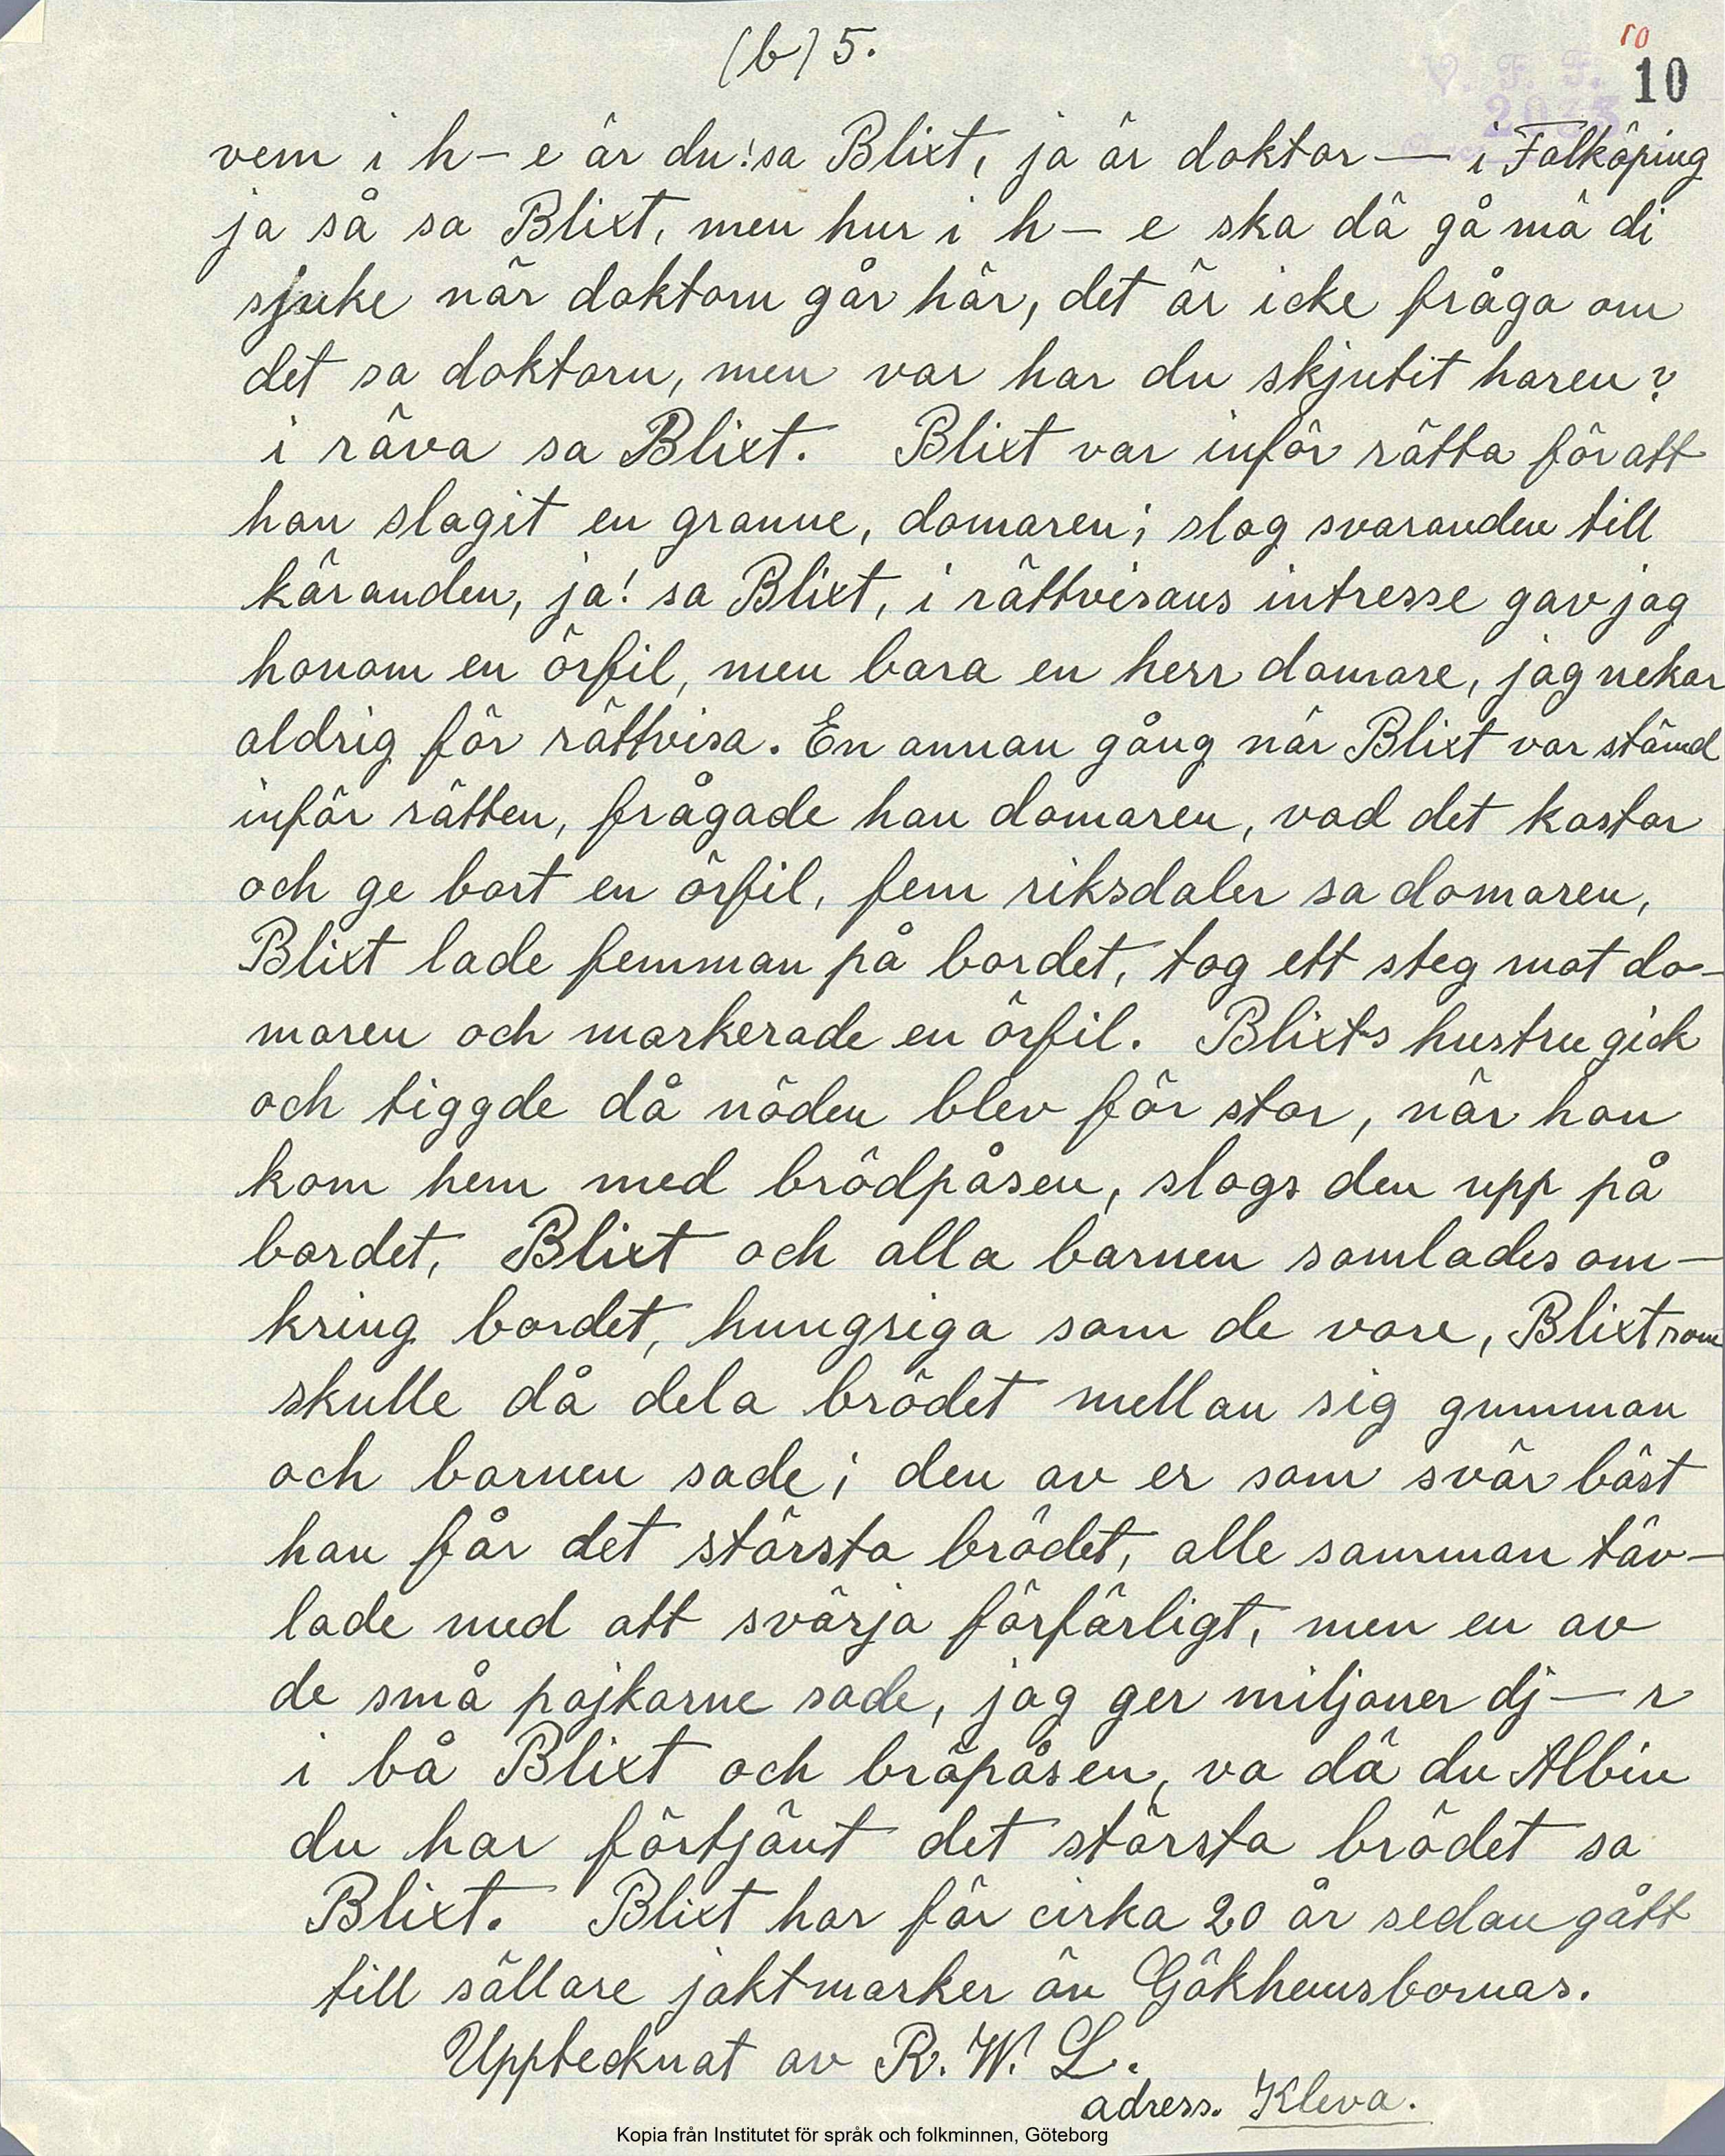 (b) 5.
10
10
V. F. F.
vem i h– e är du! sa Blixt, ja är doktor — i Falköping
ja så sa Blixt, men hur i h– e ska dä gå mä di
sjuke när doktorn går här, det är icke fråga om
det sa doktorn, men var har du skjutit haren?
i räva sa Blixt. Blixt var inför rätta för att
han slagit en granne, domaren; slog svaranden till
käranden, ja! sa Blixt, i rättvisans intresse gav jag
honom en örfil, men bara en herr domare, jag nekar
aldrig för rättvisa. En annan gång när Blixt var stämd
inför rätten, frågade han domaren, vad det kostar
och ge bort en örfil, fem riksdaler sa domaren,
Blixt lade femman på bordet, tog ett steg mot do–
maren och markerade en örfil. Blixts hustru gick
och tiggde då nöden blev för stor, när hon
kom hem med brödpåsen, slogs den upp på
bordet, Blixt och alla barnen samlades om–
kring bordet, hungriga som de vore, Blixt som
skulle då dela brödet mellan sig gumman
och barnen sade; den av er som svär bäst
han får det största brödet, alle samman täv–
lade med att svärja förfärligt, men en av
de små pojkarne sade, jag ger miljoner dj — r
i bå Blixt och bröpåsen, va dä du Albin
du har förtjänt det största brödet sa
Blixt. Blixt har för cirka 20 år sedan gått
till sällare jaktmarker än Gökhemsbornas.
Upptecknat av R. W. L.
adress. Kleva.
Kopia från Institutet för språk och folkminnen, Göteborg